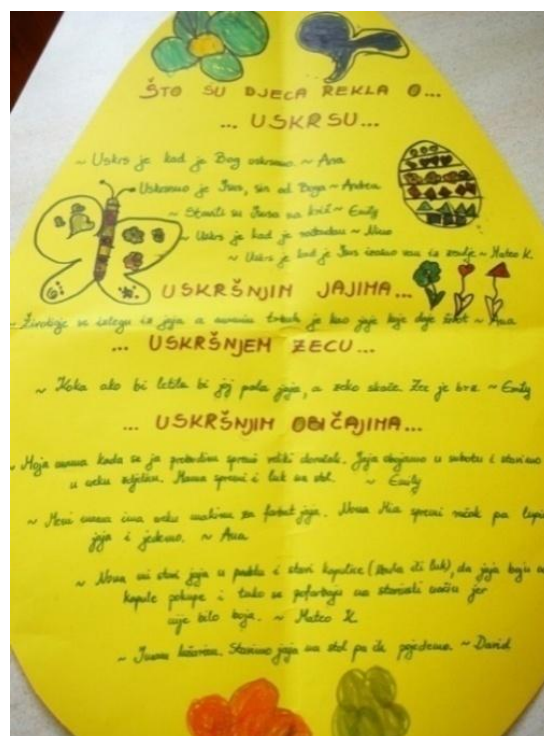 ŠTO SU DJECA REKLA O...
... USKRSU...
~ Uskrs je kad je Bog uskrsnuo. ~ Ana
~ Uskrsnuo je Isus, sin od Boga ~ Andrea
~ Stavili su Isusa na križ ~ Emily
~ Uskrs je kad je
~ Uskrs je kad je Isus izašao van iz zemlje ~ Mateo K.
... USKRŠNJIM JAJIMA...
~ Životinje se izlegu iz jaja a je kao jaje koje daje život ~ Ana
... USKRŠNJEM ZECU...
~ Koka ako bi letila bi joj pala jaja, a zeko skače. Zec je brz. ~ Emily
... USKRŠNJIM OBIČAJIMA...
~ Moja mama kada se ja probudim spremi veliki doručak. Jaja skuhamo u subotu i stavimo
u neku zdjelicu. Mama spremi i luk na stol. ~ Emily
~ Meni mama ima neku mašinu za farbat jaja. Nona Mia spremi ručak pa
jaja i jedemo. ~ Ana
~ Nona mi stavi jaja u i stavi kapulice (ili luk), da jaja boju
kapule pokupe i tako se pofarbaju na jer
nije bilo boja. ~ Mateo K.
~ Imamo Stavimo jaja na stol pa ih pojedemo. ~ David